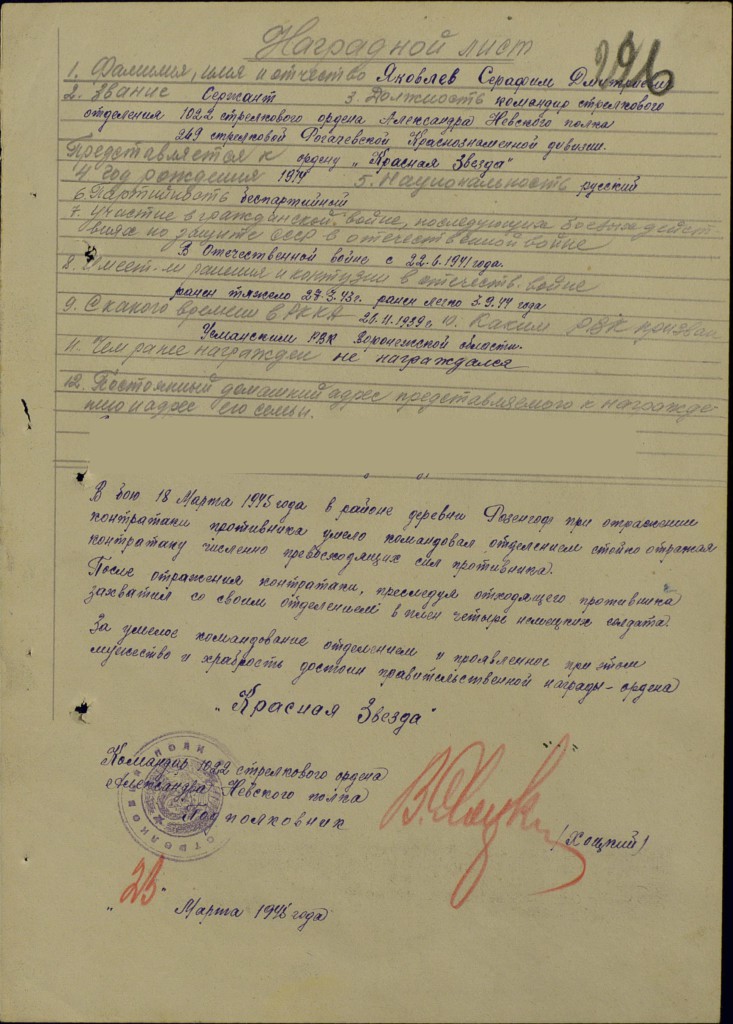 Наградной лист
296
1. Фамилия, имя и отчество Яковлев Серафим Дмитриевич
2. Звание Сержант 3. Должность командир стрелкового
отделения 1022 стрелкового ордена Александра Невского полка
269 стрелковой Рогачевской Краснознаменной дивизии.
Представляется к ордену „Красная Звезда"
4 Год рождения 1914 5. Национальность русский
6. Партийность беспартийный
7. Участие в гражданской войне, последующих боевых дейст-
виях по защите СССР в отечественной войне
В Отечественной войне с 22.6.1941 года.
8. Имеет-ли ранения и контузии в отечеств. войне
ранен тяжело 27.3.43г. ранен легко 3.9.44 года
9. С какого времени в РККА 20.11.1939г. 10. Каким РВК призван
Усманским РВК Воронежской области.
11. Чем ранее награжден не награждался
12. Постоянный домашний адрес представляемого к награжде-
нию и адрес его семьи.
В бою 18 Марта 1945 года в районе деревни Розенгоф при отражении
контратаки противника умело командовал отделением стойко отражая
контратаку численно превосходящих сил противника.
После отражения контратаки, преследуя отходящего противника
захватил со своим отделением в плен четыре немецких солдата
За умелое командование отделением и проявленное при этом
мужество и храбрость достоин правительственной награды - ордена
„Красная Звезда"
Командир 1022 стрелкового ордена
Александра Невского полка
Подполковник
(Хоцкий)
„23" Марта 1945 года